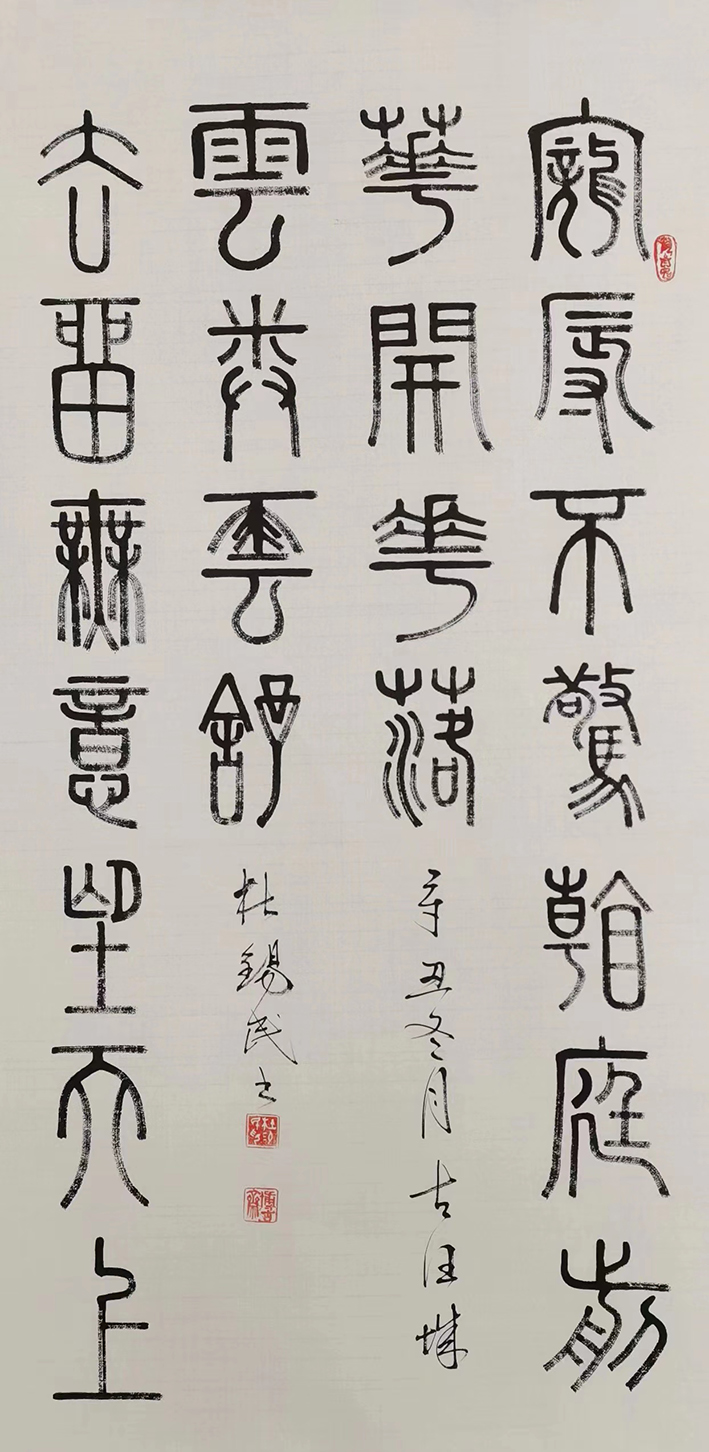 寵辱不驚看庭前
華開華落
去留無意望天上
雲卷雲舒
辛丑冬月古汪城
杜錫民书